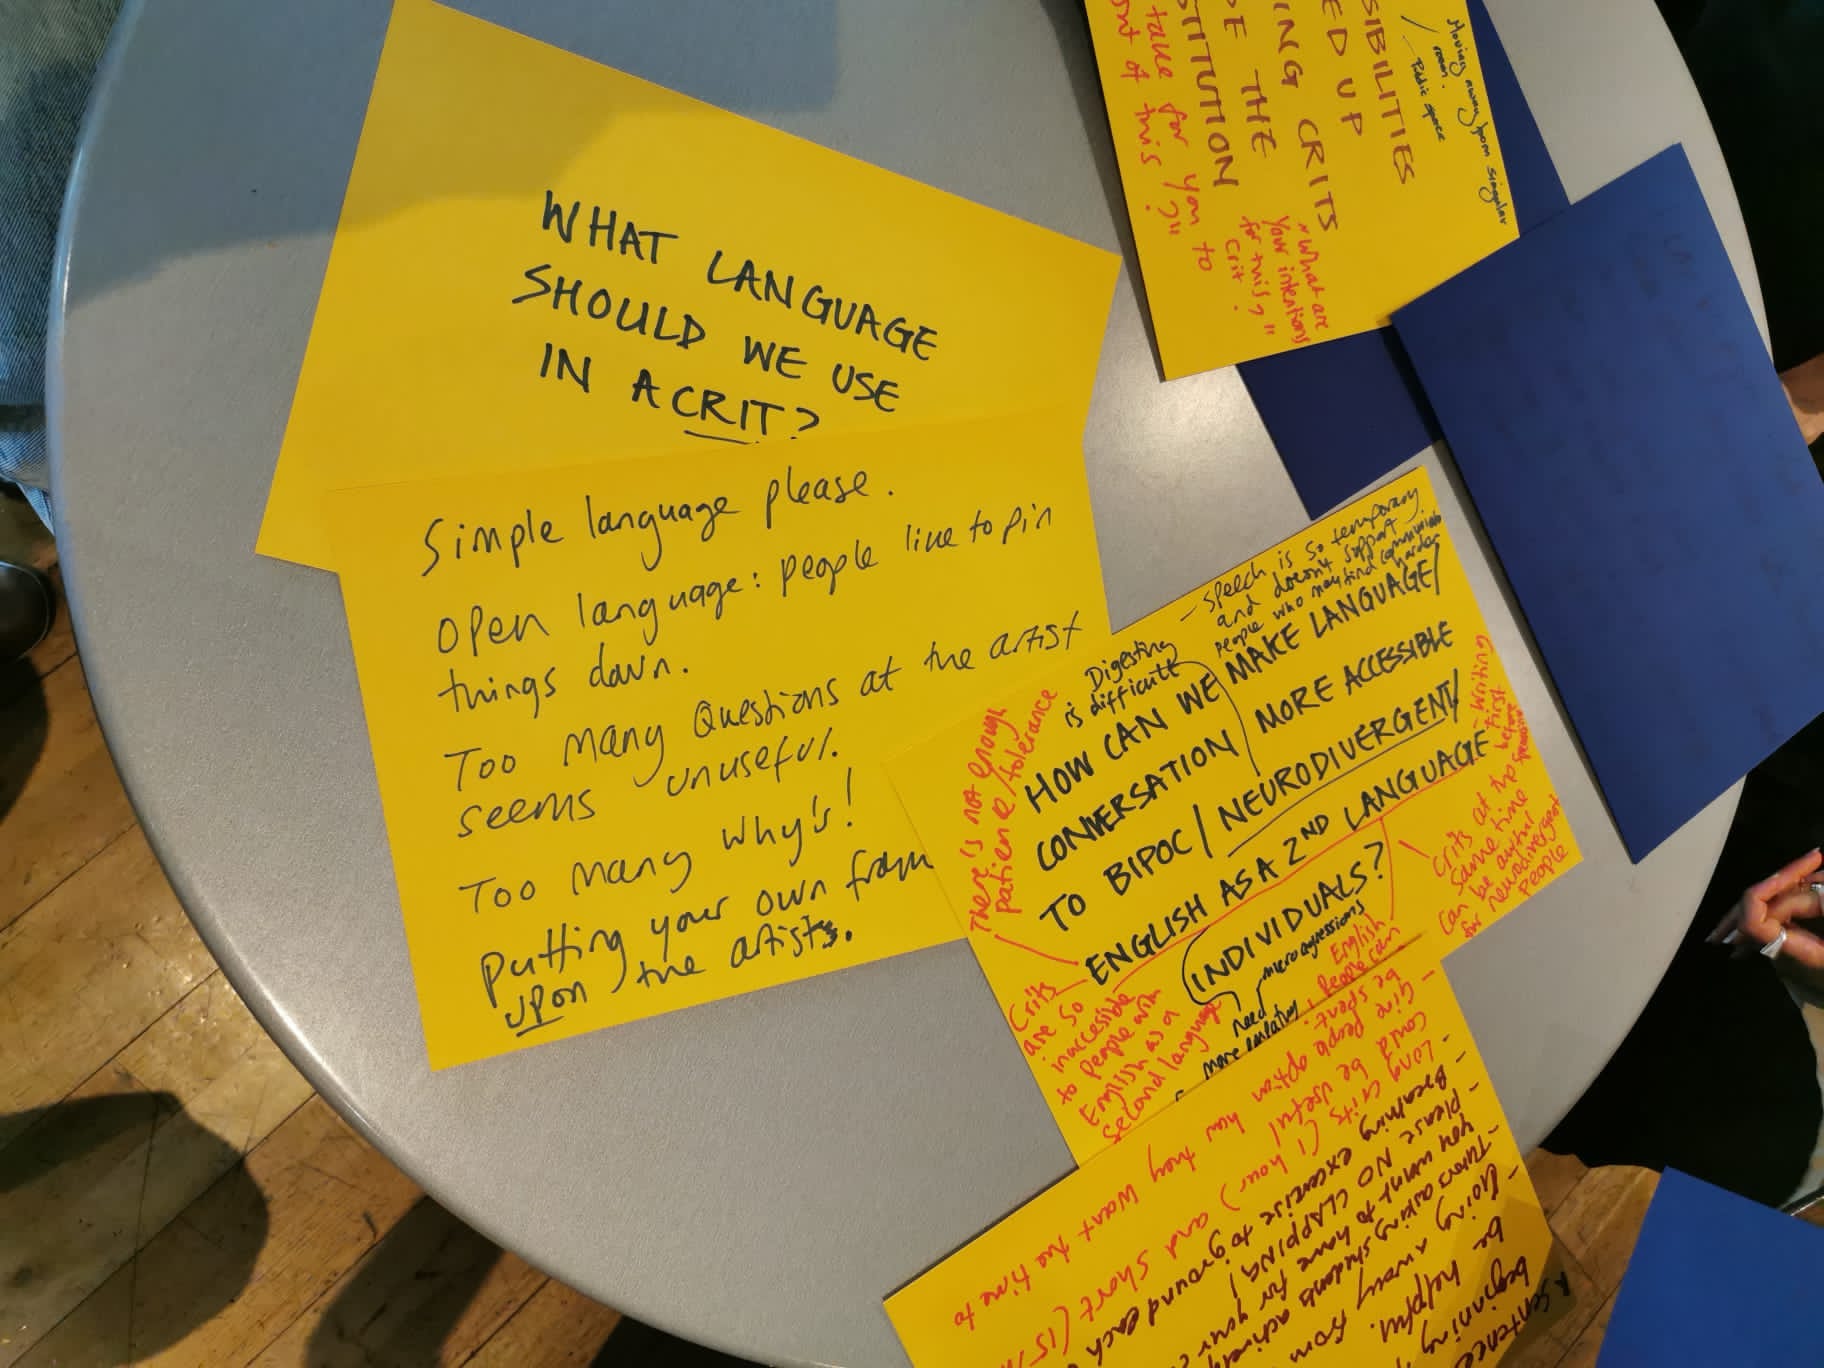 WHAT LANGUAGE
SHOULD WE USE
IN A CRIT?
Simple language please.
Open language: people like to pin
things down.
Too many Questions at the artist
seems unuseful.
Too many Why's!
Putting your own
upon the artists.
SIBILITIES
ED UP
ING CRITS
DE THE
STITUTION
take for you to
of this?"
"What are
your intentions
for this?"
Crit?
Moving away from singular
room.
Public space
- Speech is so temporary
and doesn't support
people who may find
harder
Digesting
is difficult
HOW CAN WE MAKE LANGUAGE/
CONVERSATION MORE ACCESSIBLE
TO BIPOC/NEURODIVERGENT/
ENGLISH AS A 2ND LANGUAGE
INDIVIDUALS?
There's not enough
patience/tolerance
Crits
are so
inaccesible
to people with
English as a
second language
microagressions
need
more
English
people can
- writing
first
before
Crits at the
same time
can be awful
for neurodivergent
people
- Give people option how they want the time to
be spent.
- Long crits (1 hour) and short (15
could be useful
- Breathing excercise to ground each
- Please NO CLAPPING!
you want to have for your
- Tutors asking students
- Going away from
be helpful.
beginning
sentence